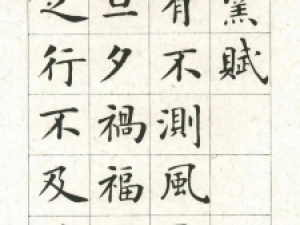 窯賦
有不測風
旦夕禍福
之行不及